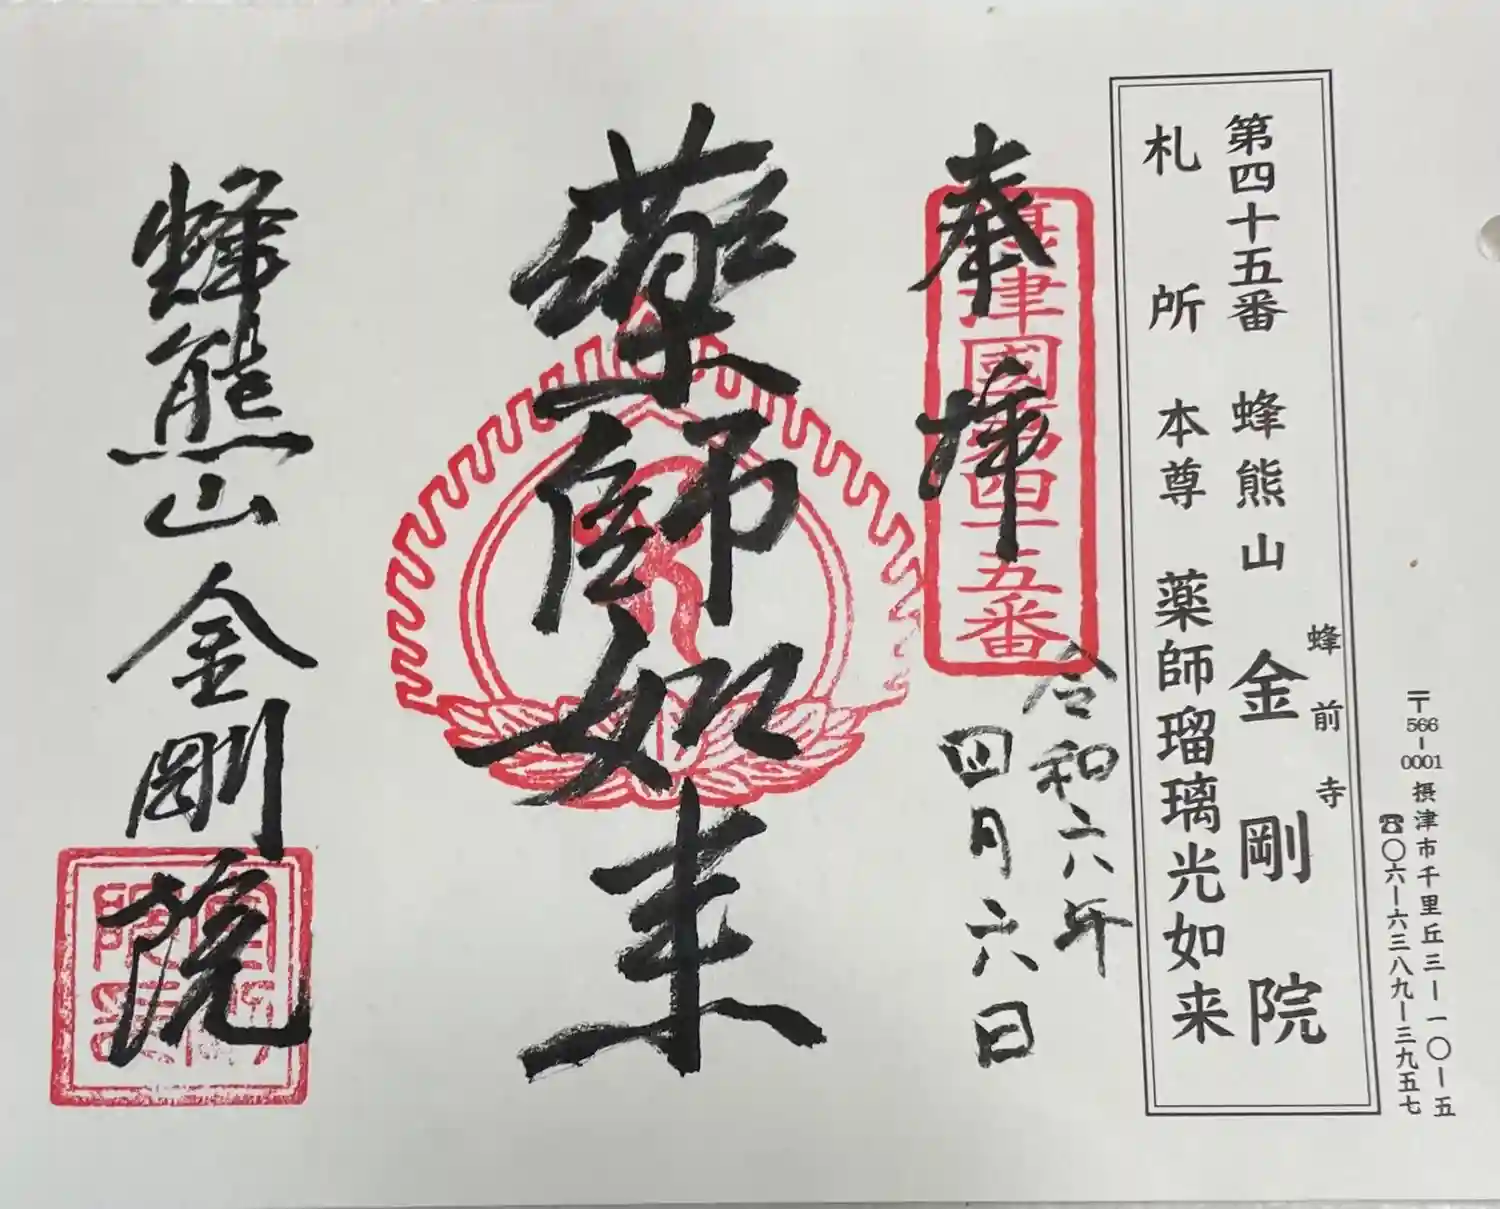 〒566-0001 摂津市千里丘三-一〇-五
☎〇六-六三八九-三九五七
第四十五番 蜂熊山 金剛院
蜂前寺
札所 本尊 薬師瑠璃光如来
奉拝
國第四十五番
令和六年
四月六日
薬師如来
蜂熊山 金剛院